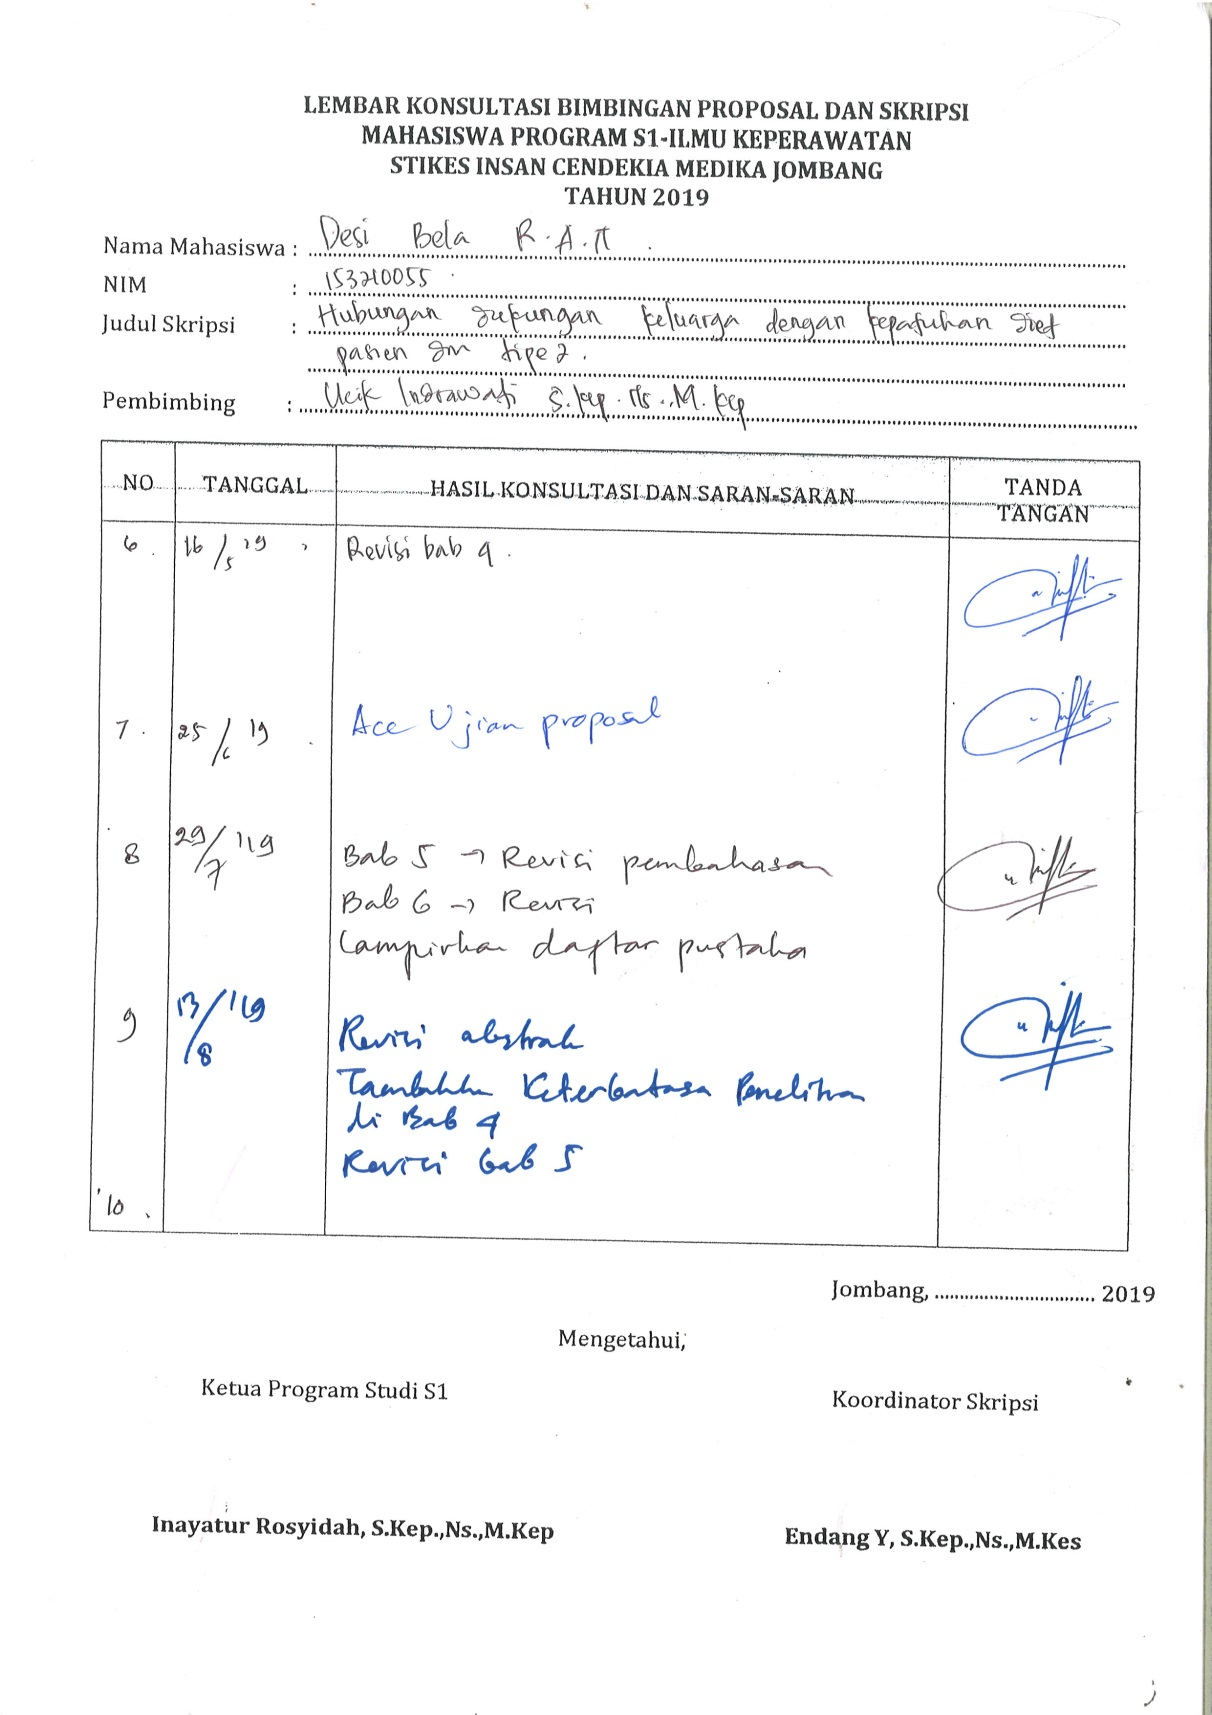 LEMBAR KONSULTASI BIMBINGAN PROPOSAL DAN SKRIPSI
MAHASISWA PROGRAM S1-ILMU KEPERAWATAN
STIKES INSAN CENDEKIA MEDIKA JOMBANG
TAHUN 2019
Nama Mahasiswa : Desi Bela R.A.
NIM : 153210055
Judul Skripsi : Hubungan dukungan keluarga dengan kepatuhan diet
pasien dm tipe 2.
Pembimbing : Ucik Indrawati S.kep.Ns.,M.kep
NO TANGGAL HASIL KONSULTASI DAN SARAN-SARAN TANDA
TANGAN
6. 16/5 '19 Revisi bab 4.
7. 25/6 19 Acc Ujian proposal
8 29/7 '19 Bab 5 → Revisi pembahasan
Bab 6 → Revisi
Lampirkan daftar pustaka
9 13/8 '19 Revisi abstrak
Tambahkan Keterbatasan Penelitian
di Bab 4
Revisi bab 5
10.
Jombang, .............................. 2019
Mengetahui,
Ketua Program Studi S1 Koordinator Skripsi
Inayatur Rosyidah, S.Kep.,Ns.,M.Kep Endang Y, S.Kep.,Ns.,M.Kes